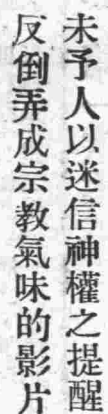 未予人以迷信神權之提醒
反倒弄成宗教氣味的影片